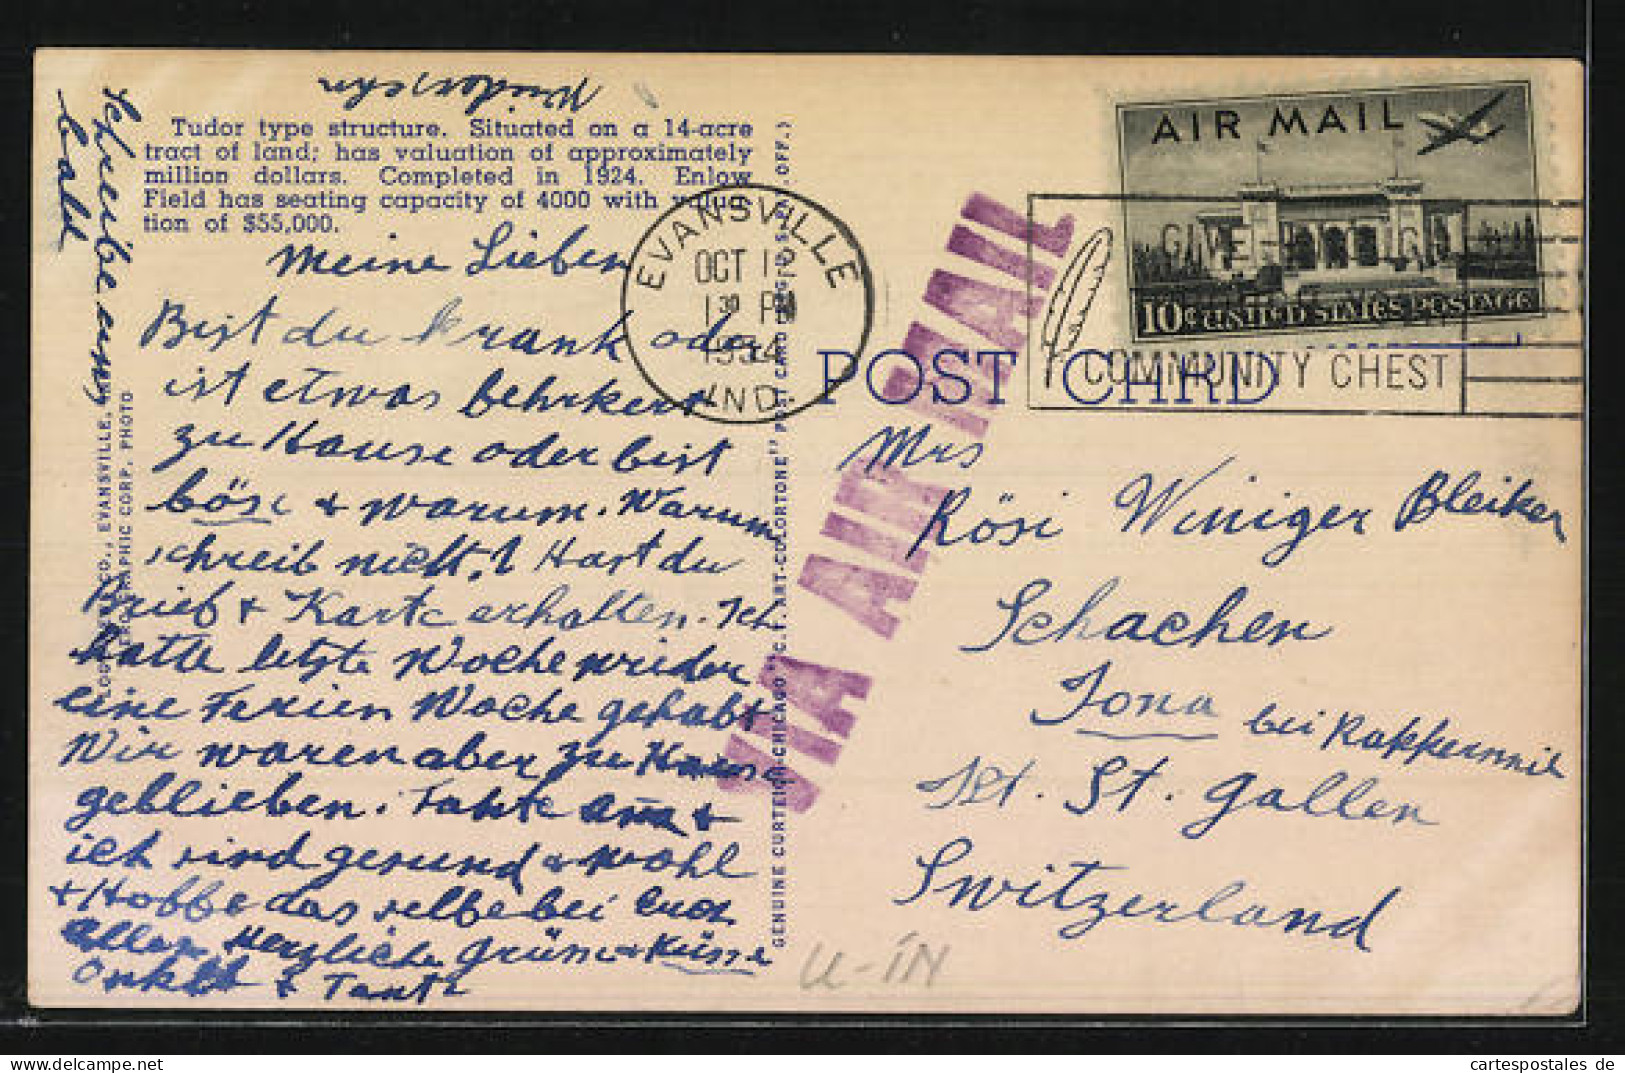 Tudor type structure. Situated on a 14-acre
tract of land; has valuation of approximately
million dollars. Completed in 1924. Enlow
Field has seating capacity of 4000 with valua-
tion of $55,000.
Meine Lieben
Bist du krank oder
ist etwas behrkert
zu Hause oder bist
böse + warum. Warum
schreib nicht! Hast du
Brief + Karte erhalten. Ich
hatte letzte Woche wieder
eine Ferien Woche gehabt
Wir waren aber zu Hause
geblieben. Tante Anna +
ich sind gesund + wohl
+ Hoffe das selbe bei Euch
allen Herzliche Grüsse + Küsse
Onkel + Tante
schreibe uns
bald
CO., EVANSVILLE,
GRAPHIC CORP. PHOTO
GENUINE CURTEICH-CHICAGO "C.T. ART-COLORTONE" POST CARD (REG. U.S. PAT. OFF.)
EVANSVILLE
OCT 1
1 30 PM
1954
IND.
AIR MAIL
10¢ UNITED STATES POSTAGE
GIVE
COMMUNITY CHEST
POST CARD
VIA AIR MAIL
AIR MAIL
Mrs
Rösi Winiger Bleiker
Schachen
Jona bei Rapperswil
Kt. St. Gallen
Switzerland
U-IN
cartespostales de